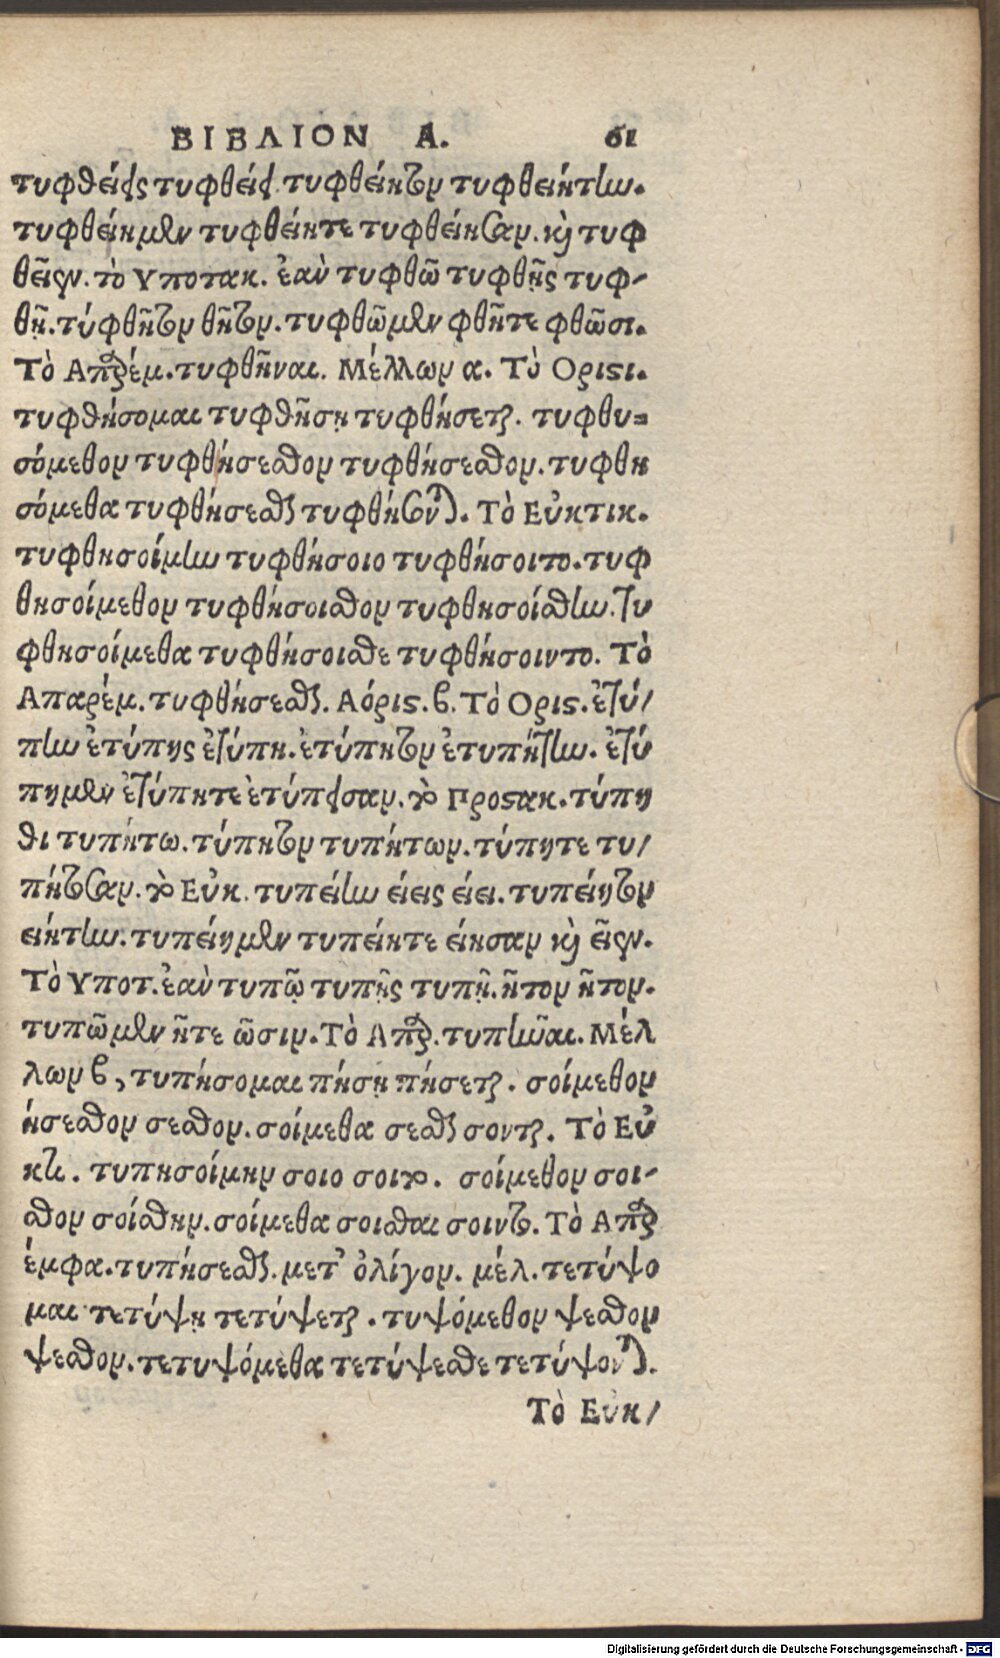 ΒΙΒΛΙΟΝ Α. 61
τυφθείης τυφθείη. τυφθείητον τυφθειήτην.
τυφθείημεν τυφθείητε τυφθείησαν. καὶ τυφ
θεῖεν. τὸ Υποτακ. ἐὰν τυφθῶ τυφθῇς τυφ-
θῇ. τύφθῆτον θῆτον. τυφθῶμεν φθῆτε φθῶσι.
Τὸ Απαρέμ. τυφθῆναι. Μέλλων α. Τὸ Οριστι.
τυφθήσομαι τυφθήσῃ τυφθήσεται. τυφθυ=
σόμεθον τυφθήσεσθον τυφθήσεσθον. τυφθη
σόμεθα τυφθήσεσθαι τυφθήσονται. Τὸ Εὐκτικ.
τυφθησοίμην τυφθήσοιο τυφθήσοιτο. τυφ
θησοίμεθον τυφθήσοισθον τυφθησοίσθην. τυ
φθησοίμεθα τυφθήσοισθε τυφθήσοιντο. Τὸ
Απαρέμ. τυφθήσεσθαι. Αόριστ. β. Τὸ Οριστ. ἐτύ/
πην ἐτύπης ἐτύπη. ἐτύπητον ἐτυπήτην. ἐτύ
πημεν ἐτύπητε ἐτύπησαν. τὸ Προστακ. τύπη
θι τυπήτω. τύπητον τυπήτων. τύπητε τυ/
πήτωσαν. τὸ Εὐκ. τυπείην είεις είει. τυπείητον
ειήτην. τυπείημεν τυπείητε είησαν καὶ εῖεν.
Τὸ Υποτ. ἐὰν τυπῶ τυπῇς τυπῇ. ῆτον ῆτον.
τυπῶμεν ῆτε ῶσιν. Τὸ Απαρ. τυπῆναι. Μέλ
λων β, τυπήσομαι πήσῃ πήσεται. σοίμεθον
ήσεσθον σεσθον. σοίμεθα σεσθαι σονται. Τὸ Εὐ
κτι. τυπησοίμην σοιο σοιτο. σοίμεθον σοι-
σθον σοίσθην. σοίμεθα σοισθαι σοιντο. Τὸ Απαρ
έμφα. τυπήσεσθαι. μετ' ὀλίγον. μέλ. τετύψο
μαι τετύψῃ τετύψεται. τυψόμεθον ψεσθον
ψεσθον. τετυψόμεθα τετύψεσθε τετύψονται.
Τὸ Εὐκ/
Digitalisierung gefördert durch die Deutsche Forschungsgemeinschaft - DFG